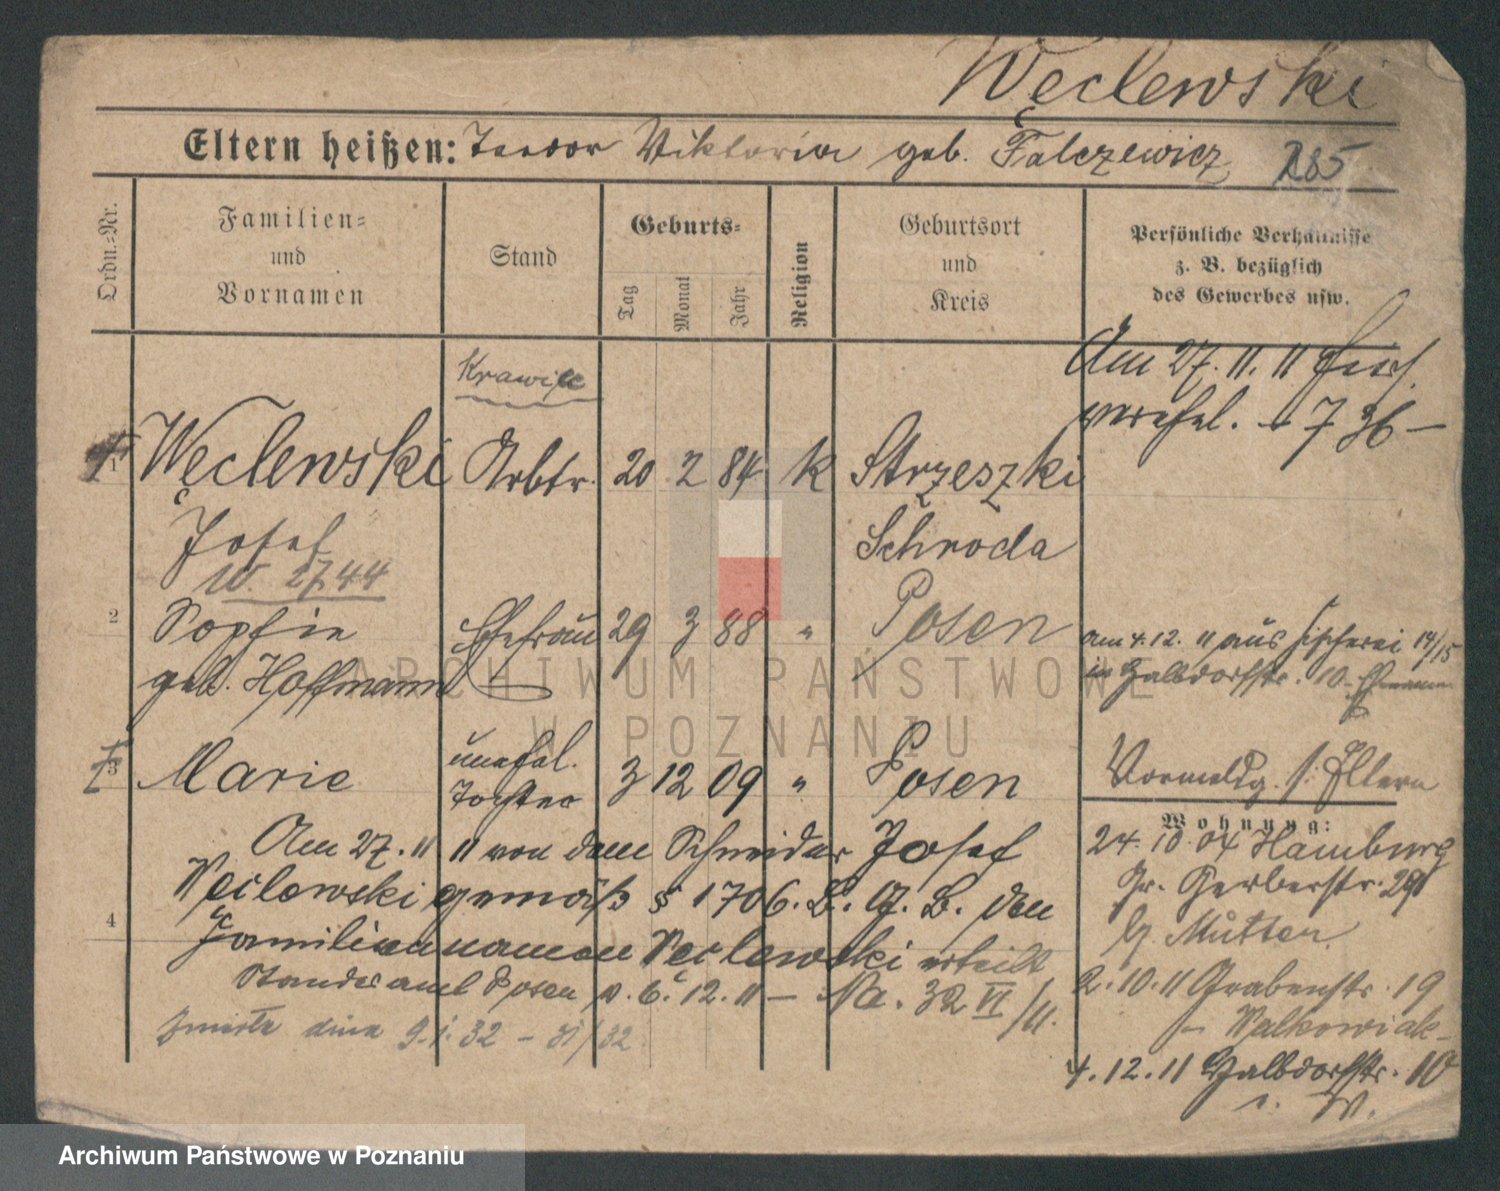 Węclewski
Eltern heißen: Teodor Viktoria geb. Falczewicz
Ordn.=Nr.
Familien=
und
Vornamen
Stand
Geburts=
Tag
Monat
Jahr
Religion
Geburtsort
und
Kreis
Persönliche Verhältnisse
z. B. bezüglich
des Gewerbes usw.
Am 27. 11. 11
verehel. 736 –
Krawiec
1 Węclewski Arbtr. 20 2 84 K Strzeszki
Josef Schroda
W. 2744
2 Sophie Ehefrau 29 3 88 " Posen
geb. Hoffmann
am 4. 12. 11 aus Fischerei 14/15
in Halbdorfstr. 10
3 Marie unehel. 3 12 09 " Posen
Tochter
Vormeldg. s. Eltern
Am 27. 11 11 von dem Schneider Josef
Węclewski gemäß § 1706. B. G. B. den
4 Familiennamen Węclewski erteilt
Standesamt Posen v. 6. 12. 11 – Na. 32 VI/11.
zmarła dnia 9. 1. 32 – 31/32
Wohnung:
24. 10. 04 Hamburg
Gr. Gerberstr. 29
b. Mutter
2. 10. 11 Grabenstr. 19
– Walkowiak –
4. 12. 11 Halbdorfstr. 10
i. W.
ARCHIWUM PAŃSTWOWE
W POZNANIU
Archiwum Państwowe w Poznaniu